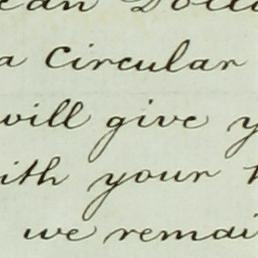 ean Dolla
a Circular
will give y
ith your
we remai